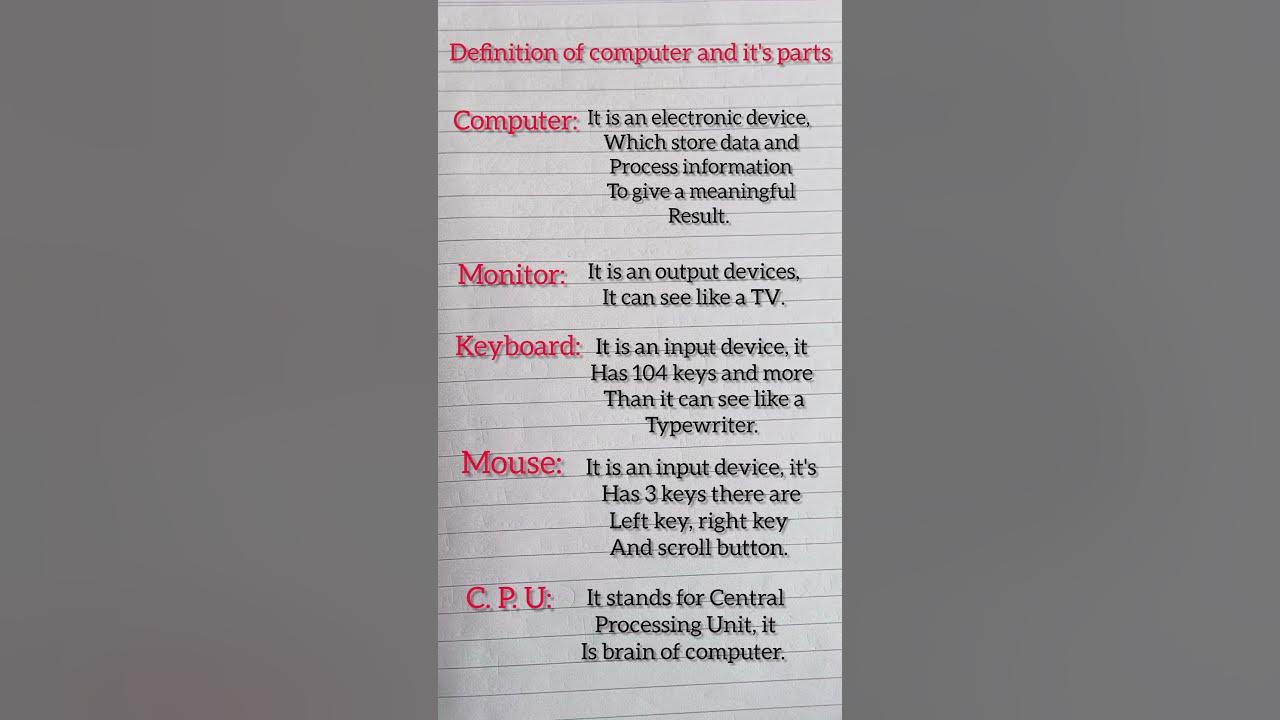 Definition of computer and it's parts
Computer: It is an electronic device,
Which store data and
Process information
To give a meaningful
Result.
Monitor: It is an output devices,
It can see like a TV.
Keyboard: It is an input device, it
Has 104 keys and more
Than it can see like a
Typewriter.
Mouse: It is an input device, it's
Has 3 keys there are
Left key, right key
And scroll button.
C. P. U: It stands for Central
Processing Unit, it
Is brain of computer.